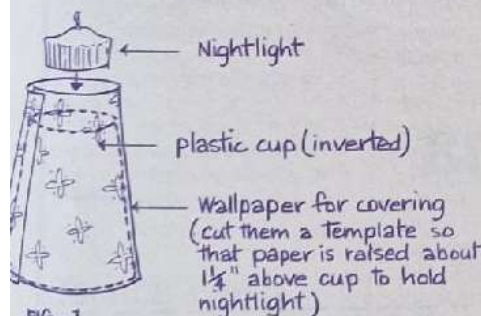 Nightlight
plastic cup (inverted)
Wallpaper for covering
(cut them a template so
that paper is raised about
1¼" above cup to hold
nightlight)
FIG. 1